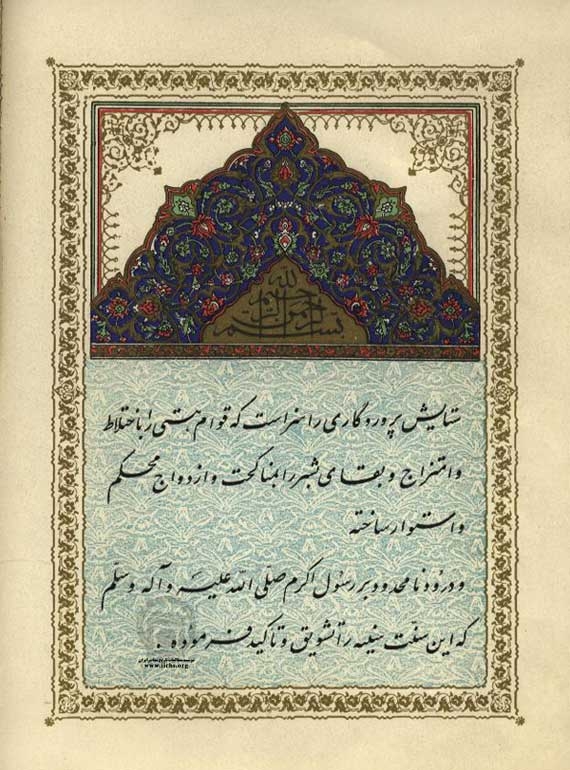 بسم الله الرحمن الرحیم
ستایش پروردگاری را سزاست که قوام هستی را باختلاط
و امتزاج و بقای بشر را بمناکحت و ازدواج محکم
و استوار ساخته
و درود نامحدود بر رسول اکرم صلّی الله علیه و آله وسلّم
که این سنّت سنیه را تشویق و تأکید فرموده .
موسسه مطالعات تاریخ معاصر ایران
www.iichs.org